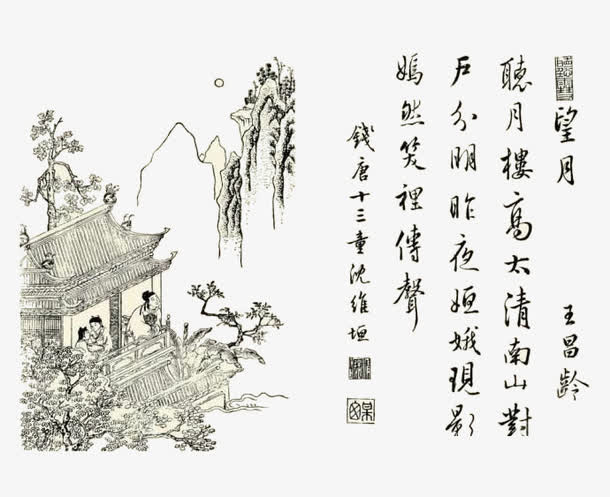 望月 王昌齡
聽月樓高太清南山對
戶分明昨夜姮娥現影
嫣然笑裡傳聲
錢唐十三童沈維垣